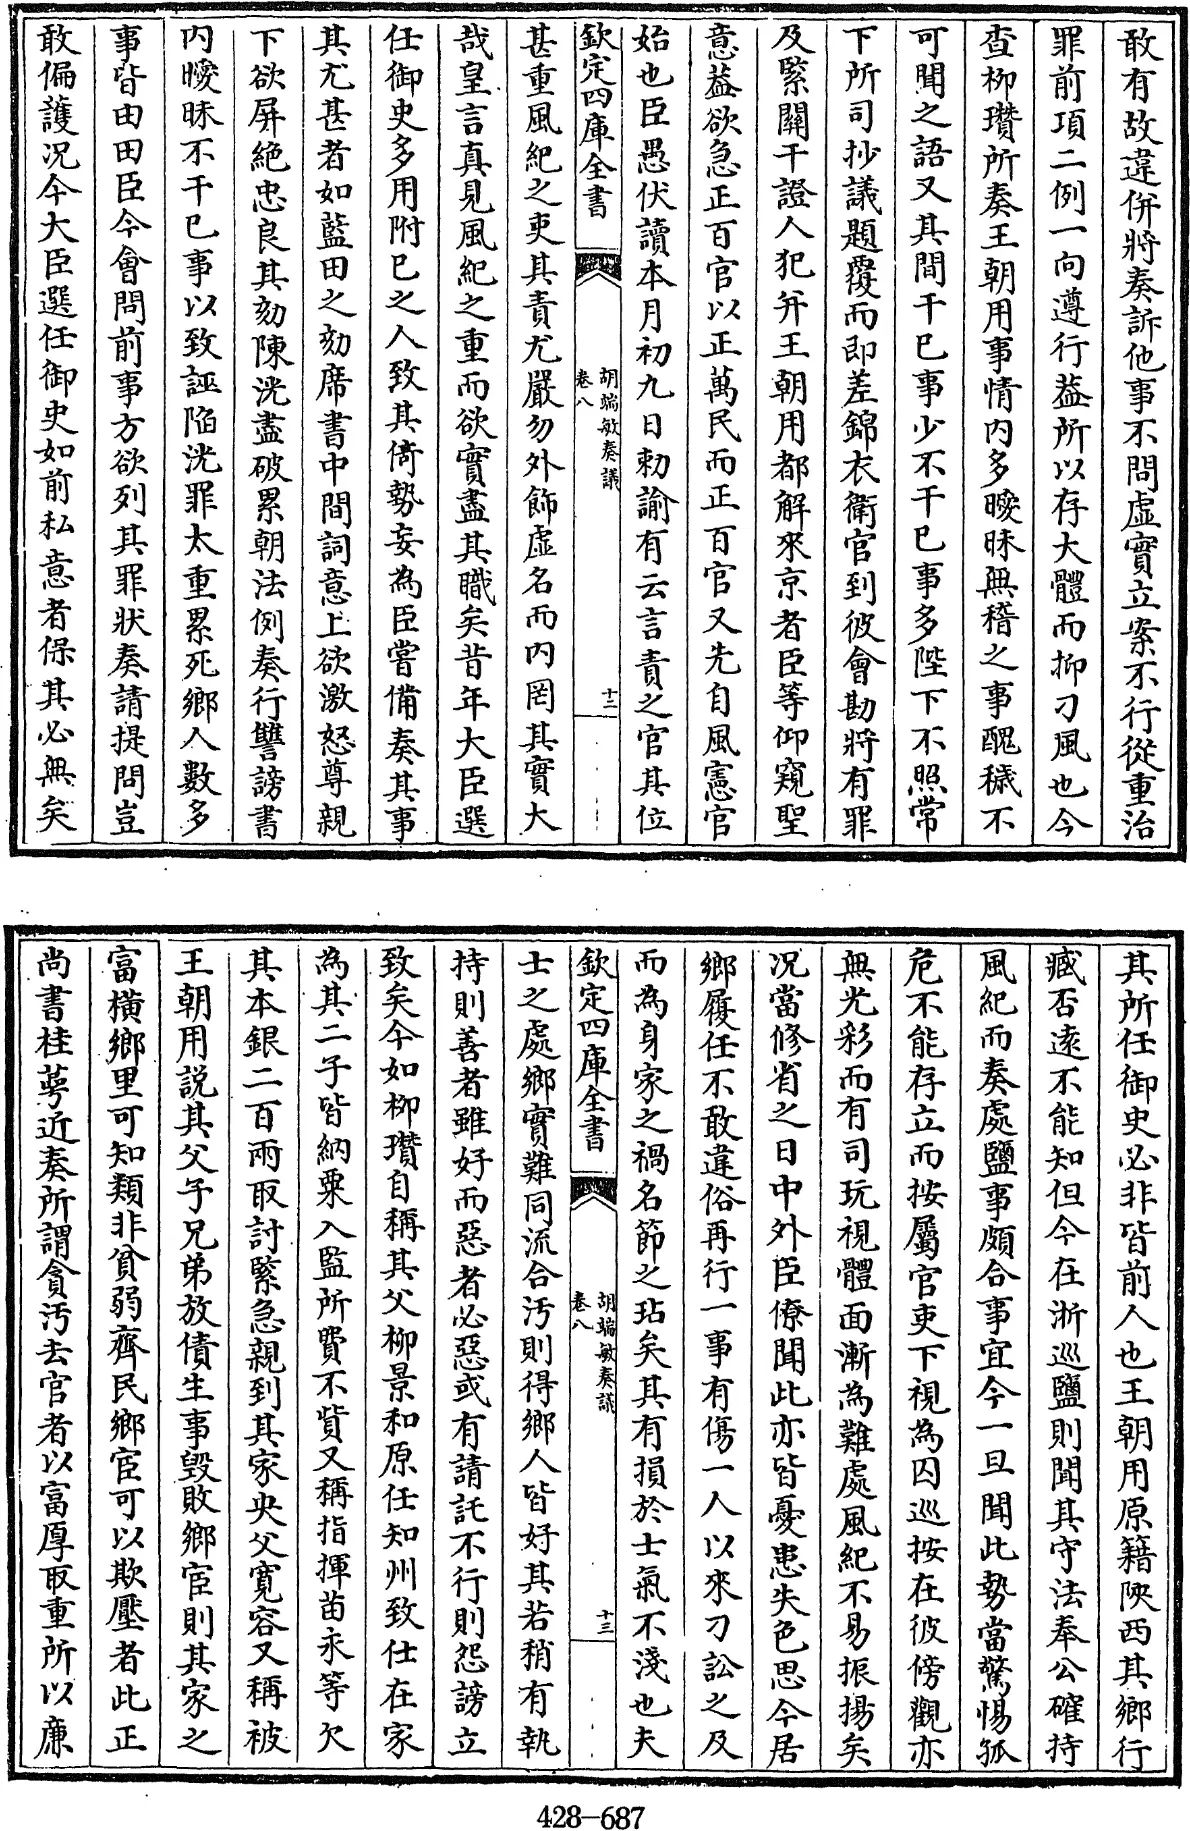 敢有故違併將奏訴他事不問虛實立案不行從重治
罪前項二例一向遵行葢所以存大體而抑刁風也今
查柳瓚所奏王朝用事情内多曖昧無稽之事醜穢不
可聞之語又其間干已事少不干已事多陛下不照常
下所司抄議題覆而即差錦衣衛官到彼會勘將有罪
及緊關干證人犯并王朝用都解來京者臣等仰窺聖
意葢欲急正百官以正萬民而正百官又先自風憲官
始也臣愚伏讀本月初九日勅諭有云言責之官其位
欽定四庫全書
胡端敏奏議
卷八
十二
甚重風紀之吏其責尤嚴勿外飾虛名而内罔其實大
哉皇言真見風紀之重而欲實盡其職矣昔年大臣選
任御史多用附已之人致其倚勢妄為臣嘗備奏其事
其尤甚者如藍田之劾席書中間詞意上欲激怒尊親
下欲屏絶忠良其劾陳洸盡破累朝法例奏行讐謗書
内曖昧不干已事以致誣陷洸罪太重累死鄉人數多
事皆由田臣今會問前事方欲列其罪狀奏請提問豈
敢偏護况今大臣選任御史如前私意者保其必無矣
其所任御史必非皆前人也王朝用原籍陜西其鄉行
臧否逺不能知但今在浙巡鹽則聞其守法奉公確持
風紀而奏處鹽事頗合事宜今一旦聞此勢當驚惕孤
危不能存立而按屬官吏下視為囚巡按在彼傍觀亦
無光彩而有司玩視體面漸為難處風紀不易振揚矣
况當修省之日中外臣僚聞此亦皆憂患失色思今居
鄉履任不敢違俗再行一事有傷一人以來刁訟之及
而為身家之禍名節之玷矣其有損於士氣不淺也夫
欽定四庫全書
胡端敏奏議
卷八
十三
士之處鄉實難同流合汚則得鄉人皆好其若稍有執
持則善者雖好而惡者必惡或有請託不行則怨謗立
致矣今如柳瓚自稱其父柳景和原任知州致仕在家
為其二子皆納粟入監所費不貲又稱指揮苗永等欠
其本銀二百兩取討緊急親到其家央父寛容又稱被
王朝用説其父子兄弟放債生事毁敗鄉宦則其家之
富橫鄉里可知類非貧弱齊民鄉宦可以欺壓者此正
尚書桂萼近奏所謂貪汚去官者以富厚取重所以廉
428—687